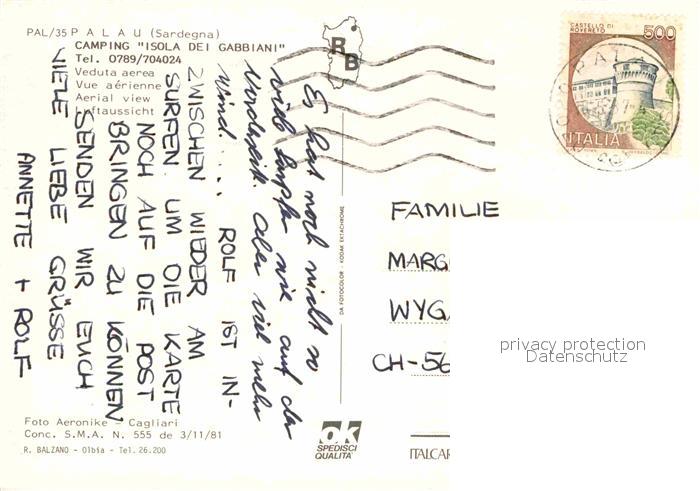 PAL/35 PALAU (Sardegna)
CAMPING "ISOLA DEI GABBIANI"
Tel. 0789/704024
Veduta aerea
Vue aérienne
Aerial view
Luftaussicht
RB
CASTELLO DI
ROVERETO
500
ITALIA
Es hat noch nicht so
viele wie auf der
Vorderseite. Aber viel mehr
Wind.... ROLF IST IN-
ZWISCHEN WIEDER AM
SURFEN. UM DIE KARTE
NOCH AUF DIE POST
BRINGEN ZU KÖNNEN
SENDEN WIR EUCH
VIELE LIEBE GRÜSSE
ANNETTE + ROLF
DA FOTOCOLOR - KODAK EKTACHROME
FAMILIE
MARG
WYG
CH-56
privacy protection
Datenschutz
Foto Aeronike - Cagliari
Conc. S.M.A. N. 555 de 3/11/81
R. BALZANO - Olbia - Tel. 26.200
ok
SPEDISCI
QUALITA'
ITALCAR